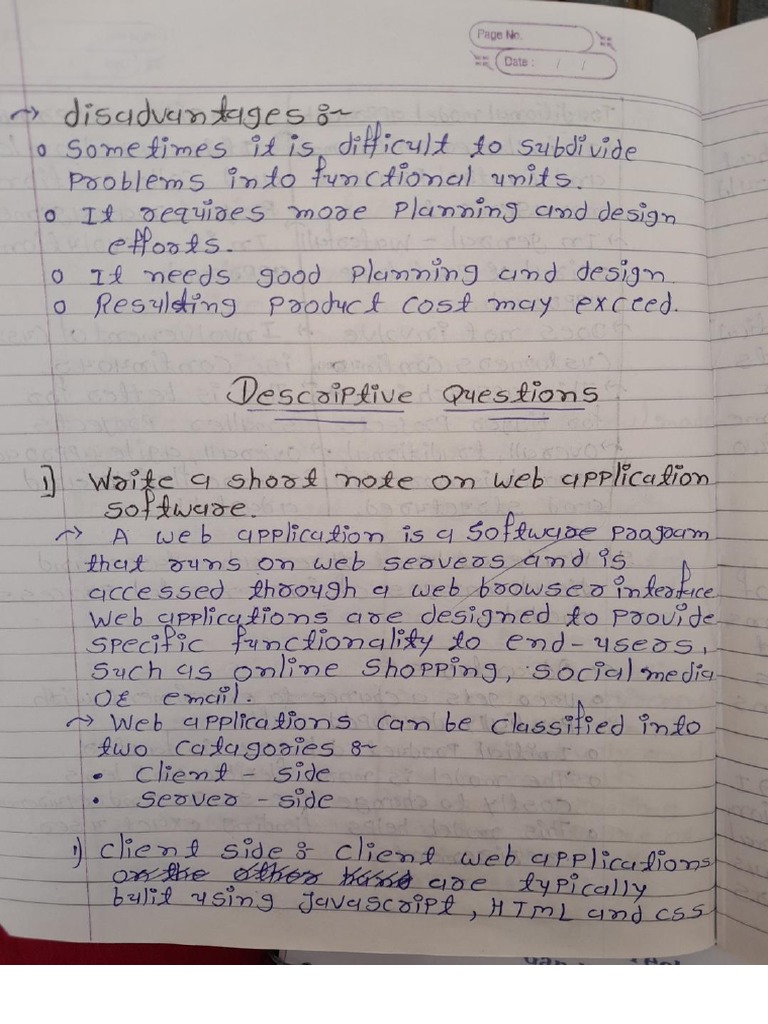 Page No.
Date : / /
→ disadvantages :~
o Sometimes it is difficult to subdivide
problems into functional units.
o It requires more planning and design
efforts.
o It needs good planning and design
o Resulting product cost may exceed.
Descriptive Questions
1] Write a short note on web application
software.
→ A web application is a software program
that runs on web servers and is
accessed through a web browser interface
Web applications are designed to provide
specific functionality to end-users,
such as online shopping, social media
or email.
→ Web applications can be classified into
two catagories :~
• Client - side
• Server - side
1) Client side : Client web applications
on the other hand are typically
bulit using javascript, HTML and CSS